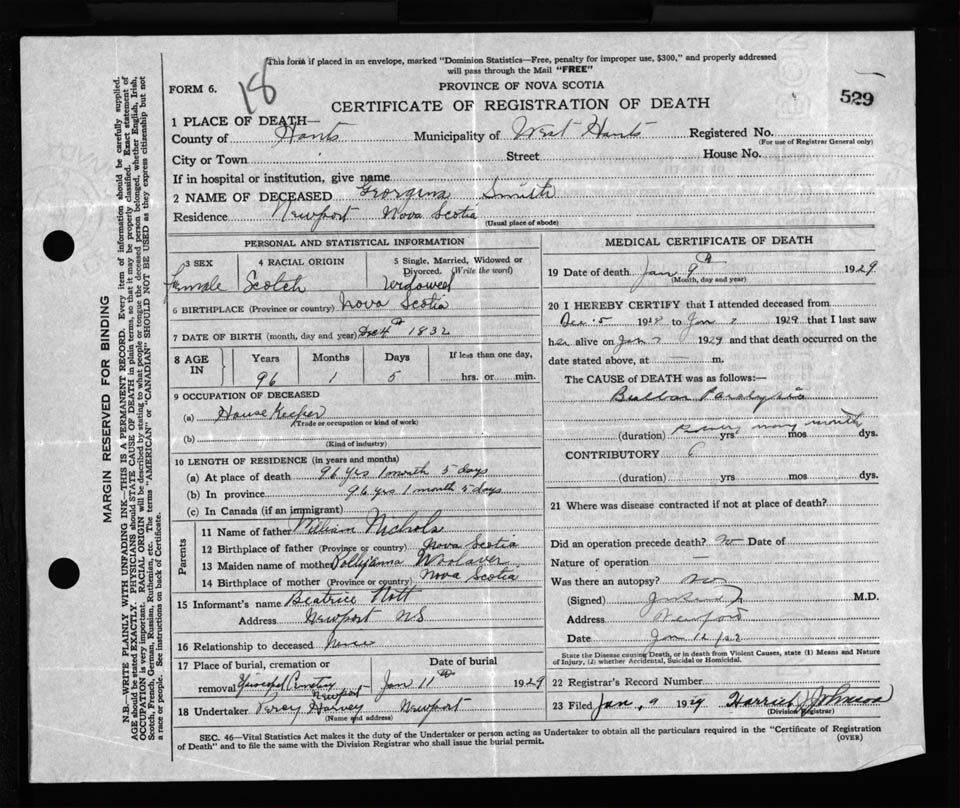 This form if placed in an envelope, marked "Dominion Statistics—Free, penalty for improper use, $300," and properly addressed
will pass through the Mail "FREE"
FORM 6.
18
PROVINCE OF NOVA SCOTIA
CERTIFICATE OF REGISTRATION OF DEATH
529
1 PLACE OF DEATH—
County of Hants Municipality of West Hants Registered No.
(For use of Registrar General only)
City or Town Street House No.
If in hospital or institution, give name
2 NAME OF DECEASED Georgina Smith
Residence Newport Nova Scotia
(Usual place of abode)
PERSONAL AND STATISTICAL INFORMATION
3 SEX 4 RACIAL ORIGIN 5 Single, Married, Widowed or Divorced. (Write the word)
Female Scotch Widowed
6 BIRTHPLACE (Province or country) Nova Scotia
7 DATE OF BIRTH (month, day and year) Dec 4th 1832
8 AGE IN Years Months Days If less than one day,
96 1 5 hrs. or min.
9 OCCUPATION OF DECEASED
(a) House Keeper
(Trade or occupation or kind of work)
(b)
(Kind of industry)
10 LENGTH OF RESIDENCE (in years and months)
(a) At place of death 96 yrs 1 month 5 days
(b) In province 96 yrs 1 month 5 days
(c) In Canada (if an immigrant)
Parents
11 Name of father William Nichols
12 Birthplace of father (Province or country) Nova Scotia
13 Maiden name of mother Woolaver
14 Birthplace of mother (Province or country) Nova Scotia
15 Informant's name Beatrice
Address Newport N S
16 Relationship to deceased
17 Place of burial, cremation or Date of burial
removal Newport Jan 11th 1929
18 Undertaker Percy Harvey Newport
(Name and address)
MEDICAL CERTIFICATE OF DEATH
19 Date of death Jan 9th 1929.
(Month, day and year)
20 I HEREBY CERTIFY that I attended deceased from
Dec. 5 1928 to Jan 7 1929 that I last saw
her alive on Jan 7 1929 and that death occurred on the
date stated above, at — m.
The CAUSE of DEATH was as follows:—
Bulbar Paralysis
(duration) yrs mos dys.
CONTRIBUTORY
(duration) yrs mos dys.
21 Where was disease contracted if not at place of death?
Did an operation precede death? no Date of
Nature of operation —
Was there an autopsy? no
(Signed) M.D.
Address Newport
Date Jan
State the Disease causing Death, or in death from Violent Causes, state (1) Means and Nature
of Injury, (2) whether Accidental, Suicidal or Homicidal.
22 Registrar's Record Number
23 Filed Jan, 9 1929 Harriet J Johnson
(Division Registrar)
SEC. 46—Vital Statistics Act makes it the duty of the Undertaker or person acting as Undertaker to obtain all the particulars required in the "Certificate of Registration
of Death" and to file the same with the Division Registrar who shall issue the burial permit.
(OVER)
MARGIN RESERVED FOR BINDING
N.B.—WRITE PLAINLY WITH UNFADING INK—THIS IS A PERMANENT RECORD. Every item of information should be carefully supplied.
AGE should be stated EXACTLY. PHYSICIANS should STATE CAUSE OF DEATH in plain terms, so that it may be properly classified. Exact statement of
OCCUPATION is very important. RACIAL ORIGIN will be described by stating to what people or tongue the deceased person belonged, whether English, Irish,
Scotch, French, German, Russian, Ruthenian, etc. The terms "AMERICAN" or "CANADIAN" SHOULD NOT BE USED as they express citizenship but not
a race or people. See instructions on back of Certificate.